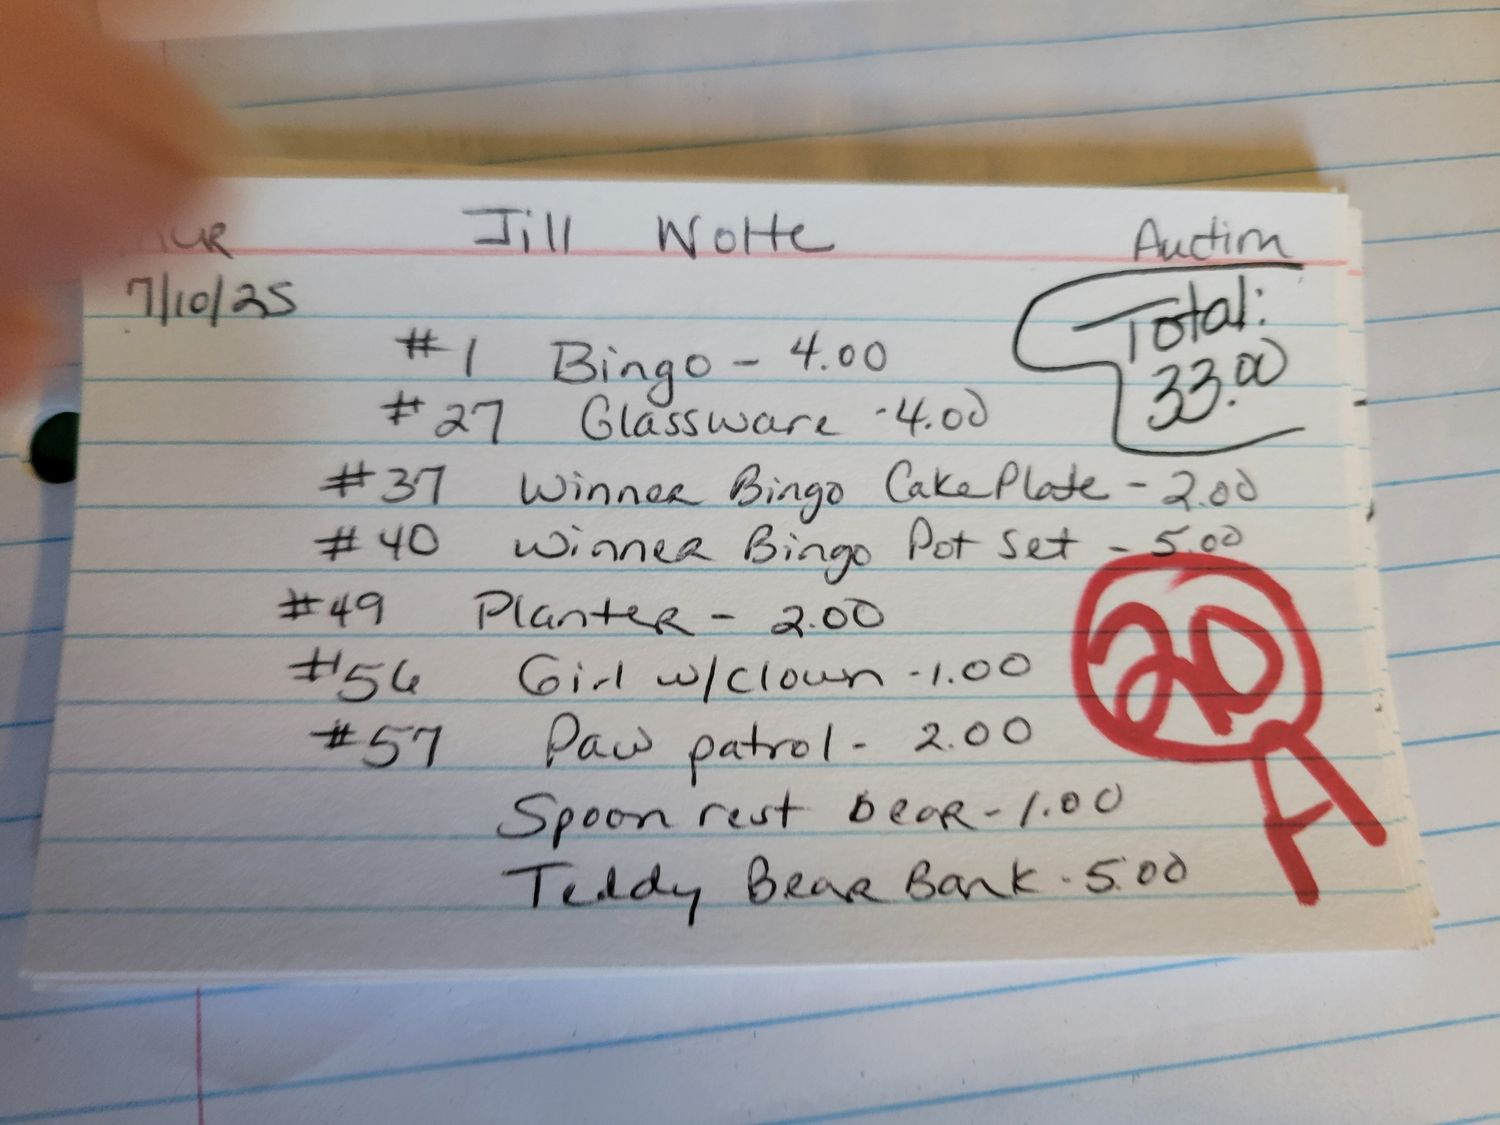 Jill Wolfe Auction
7/10/25
Total:
33.00
#1 Bingo - 4.00
#27 Glassware - 4.00
#37 Winner Bingo Cake Plate - 2.00
#40 Winner Bingo Pot Set - 5.00
#49 Planter - 2.00
#56 Girl w/clown - 1.00
#57 Paw patrol - 2.00
Spoon rest bear - 1.00
Teddy Bear Bank - 5.00
20